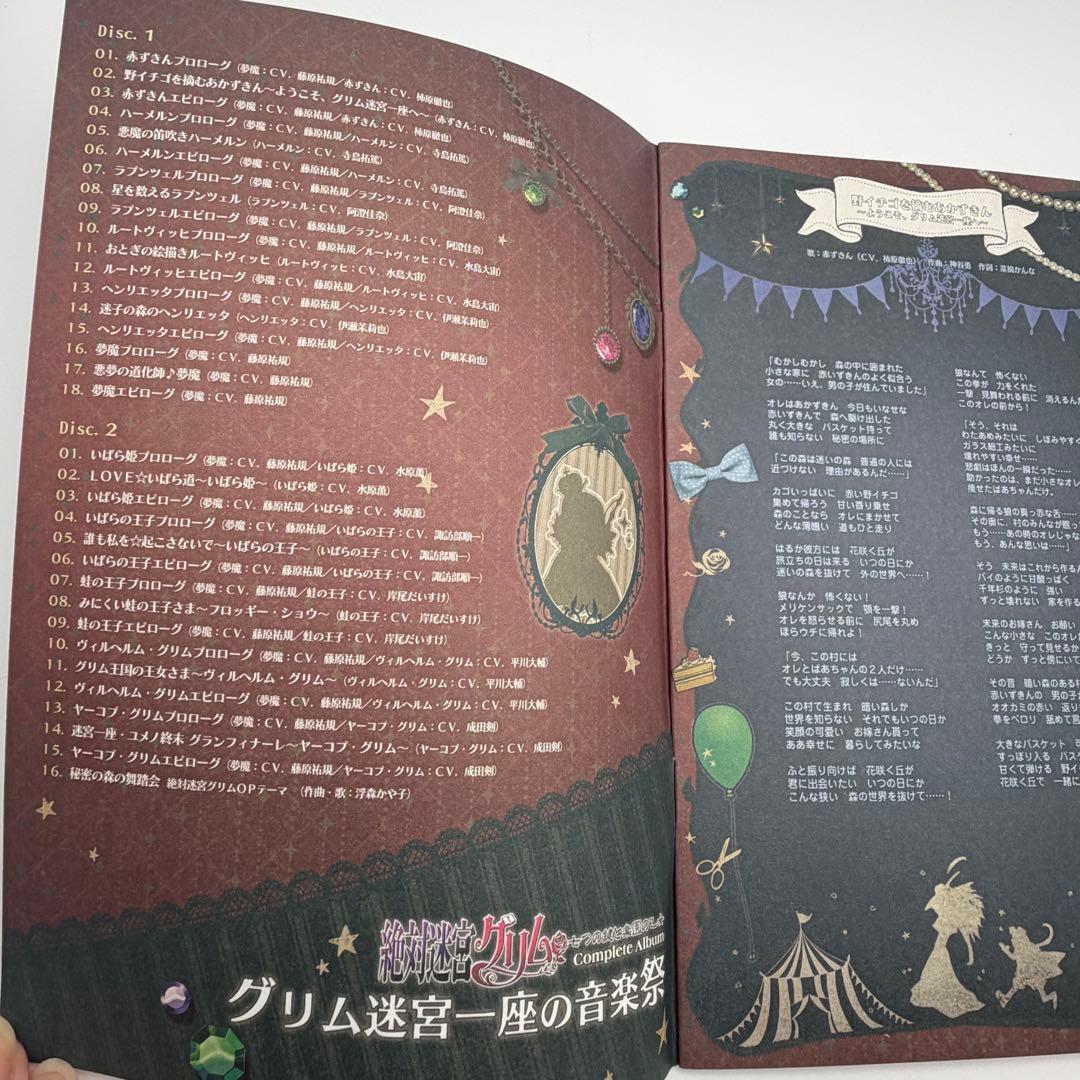 Disc. 1
01. 赤ずきんプロローグ (夢魔：CV. 藤原祐規／赤ずきん：CV. 柿原徹也)
02. 野イチゴを摘むあかずきん～ようこそ、グリム迷宮一座へ～ (赤ずきん：CV. 柿原徹也)
03. 赤ずきんエピローグ (夢魔：CV. 藤原祐規／赤ずきん：CV. 柿原徹也)
04. ハーメルンプロローグ (夢魔：CV. 藤原祐規／ハーメルン：CV. 寺島拓篤)
05. 悪魔の笛吹きハーメルン (ハーメルン：CV. 寺島拓篤)
06. ハーメルンエピローグ (夢魔：CV. 藤原祐規／ハーメルン：CV. 寺島拓篤)
07. ラプンツェルプロローグ (夢魔：CV. 藤原祐規／ラプンツェル：CV. 阿澄佳奈)
08. 星を数えるラプンツェル (ラプンツェル：CV. 阿澄佳奈)
09. ラプンツェルエピローグ (夢魔：CV. 藤原祐規／ラプンツェル：CV. 阿澄佳奈)
10. ルートヴィッヒプロローグ (夢魔：CV. 藤原祐規／ルートヴィッヒ：CV. 水島大宙)
11. おとぎの絵描きルートヴィッヒ (ルートヴィッヒ：CV. 水島大宙)
12. ルートヴィッヒエピローグ (夢魔：CV. 藤原祐規／ルートヴィッヒ：CV. 水島大宙)
13. ヘンリエッタプロローグ (夢魔：CV. 藤原祐規／ヘンリエッタ：CV. 伊瀬茉莉也)
14. 迷子の森のヘンリエッタ (ヘンリエッタ：CV. 伊瀬茉莉也)
15. ヘンリエッタエピローグ (夢魔：CV. 藤原祐規／ヘンリエッタ：CV. 伊瀬茉莉也)
16. 夢魔プロローグ (夢魔：CV. 藤原祐規)
17. 悪夢の道化師♪夢魔 (夢魔：CV. 藤原祐規)
18. 夢魔エピローグ (夢魔：CV. 藤原祐規)
Disc. 2
01. いばら姫プロローグ (夢魔：CV. 藤原祐規／いばら姫：CV. 水原薫)
02. LOVE☆いばら道～いばら姫～ (いばら姫：CV. 水原薫)
03. いばら姫エピローグ (夢魔：CV. 藤原祐規／いばら姫：CV. 水原薫)
04. いばらの王子プロローグ (夢魔：CV. 藤原祐規／いばらの王子：CV. 諏訪部順一)
05. 誰も私を☆起こさないで～いばらの王子～ (いばらの王子：CV. 諏訪部順一)
06. いばらの王子エピローグ (夢魔：CV. 藤原祐規／いばらの王子：CV. 諏訪部順一)
07. 蛙の王子プロローグ (夢魔：CV. 藤原祐規／蛙の王子：CV. 岸尾だいすけ)
08. みにくい蛙の王子さま～フロッギー・ショウ～ (蛙の王子：CV. 岸尾だいすけ)
09. 蛙の王子エピローグ (夢魔：CV. 藤原祐規／蛙の王子：CV. 岸尾だいすけ)
10. ヴィルヘルム・グリムプロローグ (夢魔：CV. 藤原祐規／ヴィルヘルム・グリム：CV. 平川大輔)
11. グリム王国の王女さま～ヴィルヘルム・グリム～ (ヴィルヘルム・グリム：CV. 平川大輔)
12. ヴィルヘルム・グリムエピローグ (夢魔：CV. 藤原祐規／ヴィルヘルム・グリム：CV. 平川大輔)
13. ヤーコプ・グリムプロローグ (夢魔：CV. 藤原祐規／ヤーコプ・グリム：CV. 成田剣)
14. 迷宮一座・ユメノ終末 グランフィナーレ～ヤーコプ・グリム～ (ヤーコプ・グリム：CV. 成田剣)
15. ヤーコプ・グリムエピローグ (夢魔：CV. 藤原祐規／ヤーコプ・グリム：CV. 成田剣)
16. 秘密の森の舞踏会 絶対迷宮グリムOPテーマ (作曲・歌：浮森かや子)
絶対迷宮グリム
七つの鍵と楽園の乙女
Complete Album
グリム迷宮一座の音楽祭
野イチゴを摘むあかずきん
～ようこそ、グリム迷宮一座へ～
歌：赤ずきん (CV. 柿原徹也) 作曲：神谷勇 作詞：菜摘かんな
「むかしむかし 森の中に囲まれた
小さな家に 赤いずきんのよく似合う
女の……いえ、男の子が住んでいました」
オレはあかずきん 今日もいなせな
赤いずきんで 森へ駆け出した
丸く大きな バスケット持って
誰も知らない 秘密の場所に
「この森は迷いの森 普通の人には
近づけない 理由があるんだ……」
カゴいっぱいに 赤い野イチゴ
集めて帰ろう 甘い香り乗せ
森のことなら オレにまかせて
どんな薄暗い 道もひと走り
はるか彼方には 花咲く丘が
旅立ちの日は来る いつの日にか
迷いの森を抜けて 外の世界へ……！
狼なんか 怖くない！
メリケンサックで 顎を一撃！
オレを怒らせる前に 尻尾を丸め
ほらウチに帰れよ！
「今、この村には
オレとばあちゃんの2人だけ……
でも大丈夫 寂しくは……ないんだ」
この村で生まれ 暗い森しか
世界を知らない それでもいつの日か
笑顔の可愛い お嫁さん貰って
ああ幸せに 暮らしてみたいな
ふと振り向けば 花咲く丘が
君に出会いたい いつの日にか
こんな狭い 森の世界を抜けて……！
狼なんて 怖くない
この拳が 力をくれた
一撃 見舞われる前に 消えるんだ
このオレの前から！
「そう、それは
わたあめみたいに しぼみやすく
ガラス細工みたいに
壊れやすい幸せ……
悲劇はほんの一瞬だった……
助かったのは、まだ小さなオレ
痩せたばあちゃんだけ。
森に帰る狼の真っ赤な舌……
その奥に、村のみんなが眠っ
もう……あの時のオレじゃな
もう、あんな思いは……」
そう 未来はこれから作るん
パイのように甘酸っぱく
千年杉のように 強い
ずっと壊れない 家を作る
未来のお嫁さん お願い
こんな小さな このオレ
きっと 守って見せるか
どうか ずっと傍にいて
その昔 暗い森のある村
赤いずきんの 男の子が
オオカミの赤い 返り
拳をペロリ 舐めて言
大きなバスケット
すっぽり入る バス
甘くて弾ける 野イ
花咲く丘で 一緒に